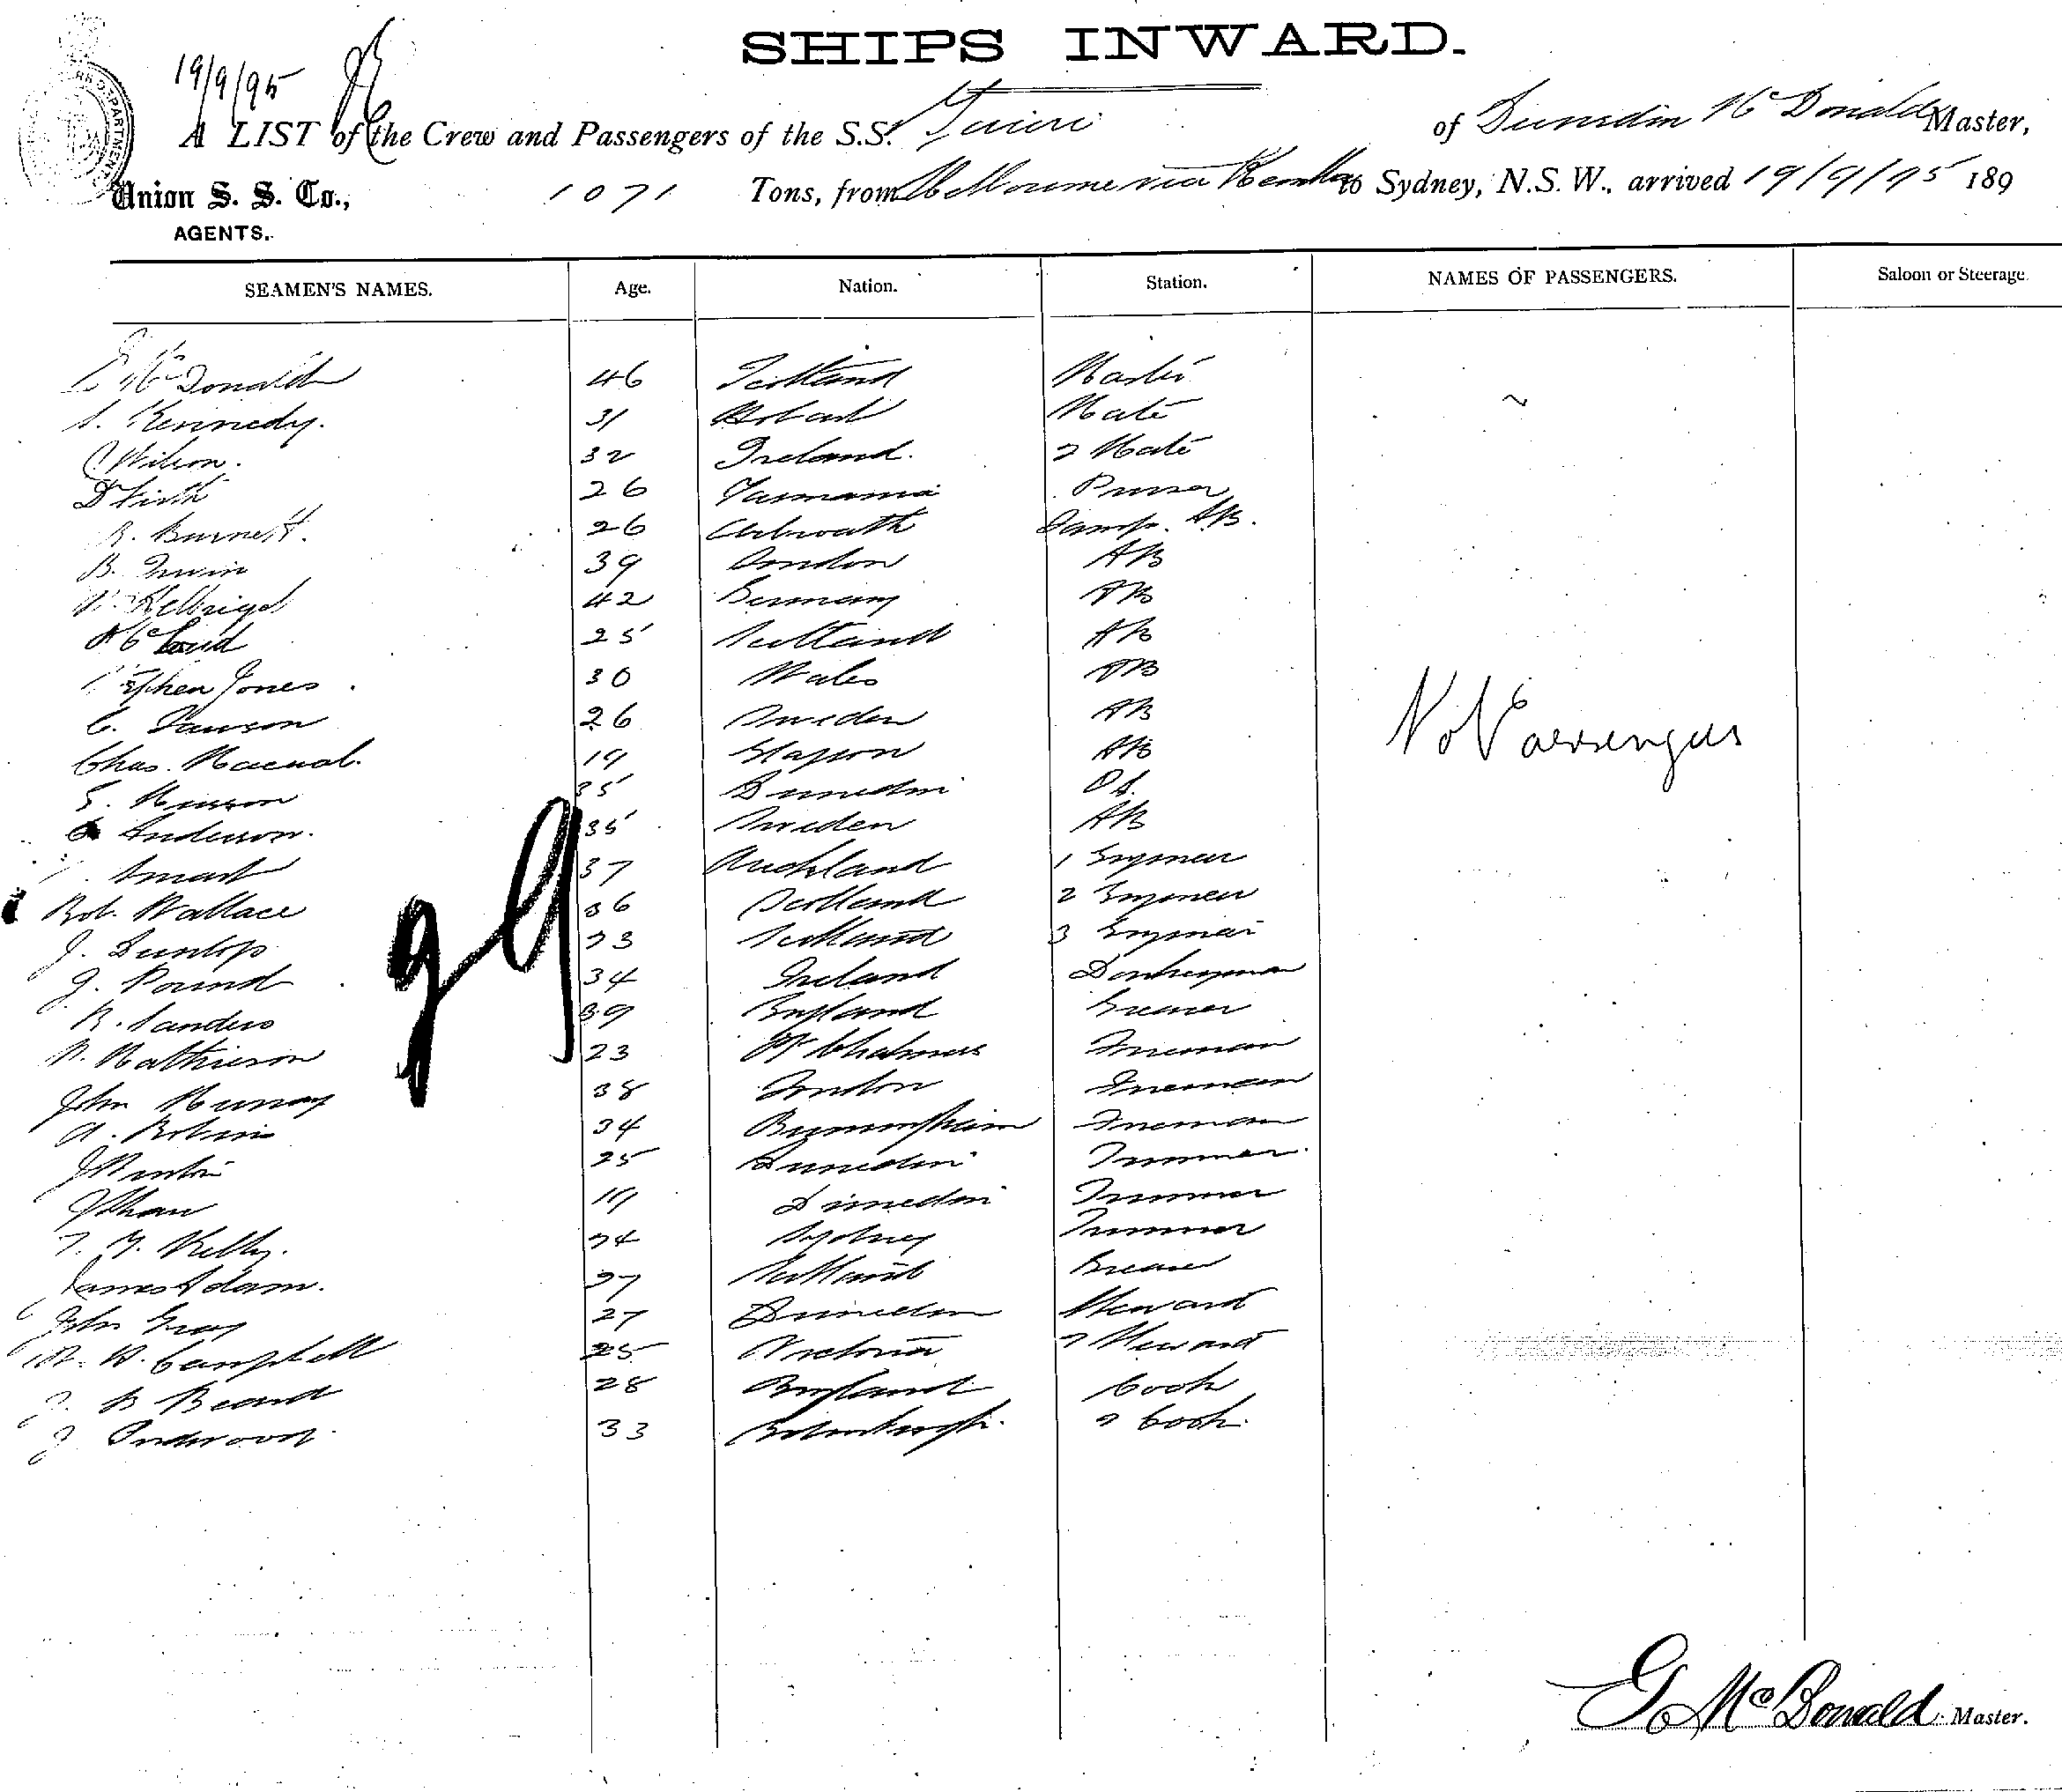 SHIPS INWARD.
19/9/95
A LIST of the Crew and Passengers of the S.S. Taieri of Dunedin McDonald Master,
Union S. S. Co., 1071 Tons, from Melbourne via Kembla to Sydney, N.S.W., arrived 19/9/95 189
AGENTS.
SEAMEN'S NAMES. Age. Nation. Station. NAMES OF PASSENGERS. Saloon or Steerage.
G McDonald 46 Scotland Master
Kennedy. 31 Hobart Mate
Wilson. 32 Ireland. 2 Mate
D Firth 26 Tasmania Purser
R. Burnett. 26 Arbroath Lamp. AB.
B. Irwin 39 London AB
42 Germany AB
25 Scotland AB
Stephen Jones 30 Wales AB
C. 26 Sweden AB
Chas. 19 AB
35 Dunedin OS.
Anderson. 35 Sweden AB
Smart 37 Auckland 1 Engineer
Rob. Wallace 36 Scotland 2 Engineer
J. Dunlop 23 Scotland 3 Engineer
J. Pound 34 Ireland Donkeyman
R. Sanders 39 England Greaser
Mathieson 23 Pt Chalmers Fireman
John Murray 38 London Fireman
A. 34 Birmingham Fireman
25 Dunedin Trimmer
19 Dunedin Trimmer
Kelly. 24 Sydney Trimmer
James Adam. 27 Scotland
John Gray 27 Dunedin Steward
W. Campbell 25 Victoria 2 Steward
Beard 28 England Cook
J. Underwood 33 Edinburgh. 2 Cook
No Passengers
G McDonald. Master.